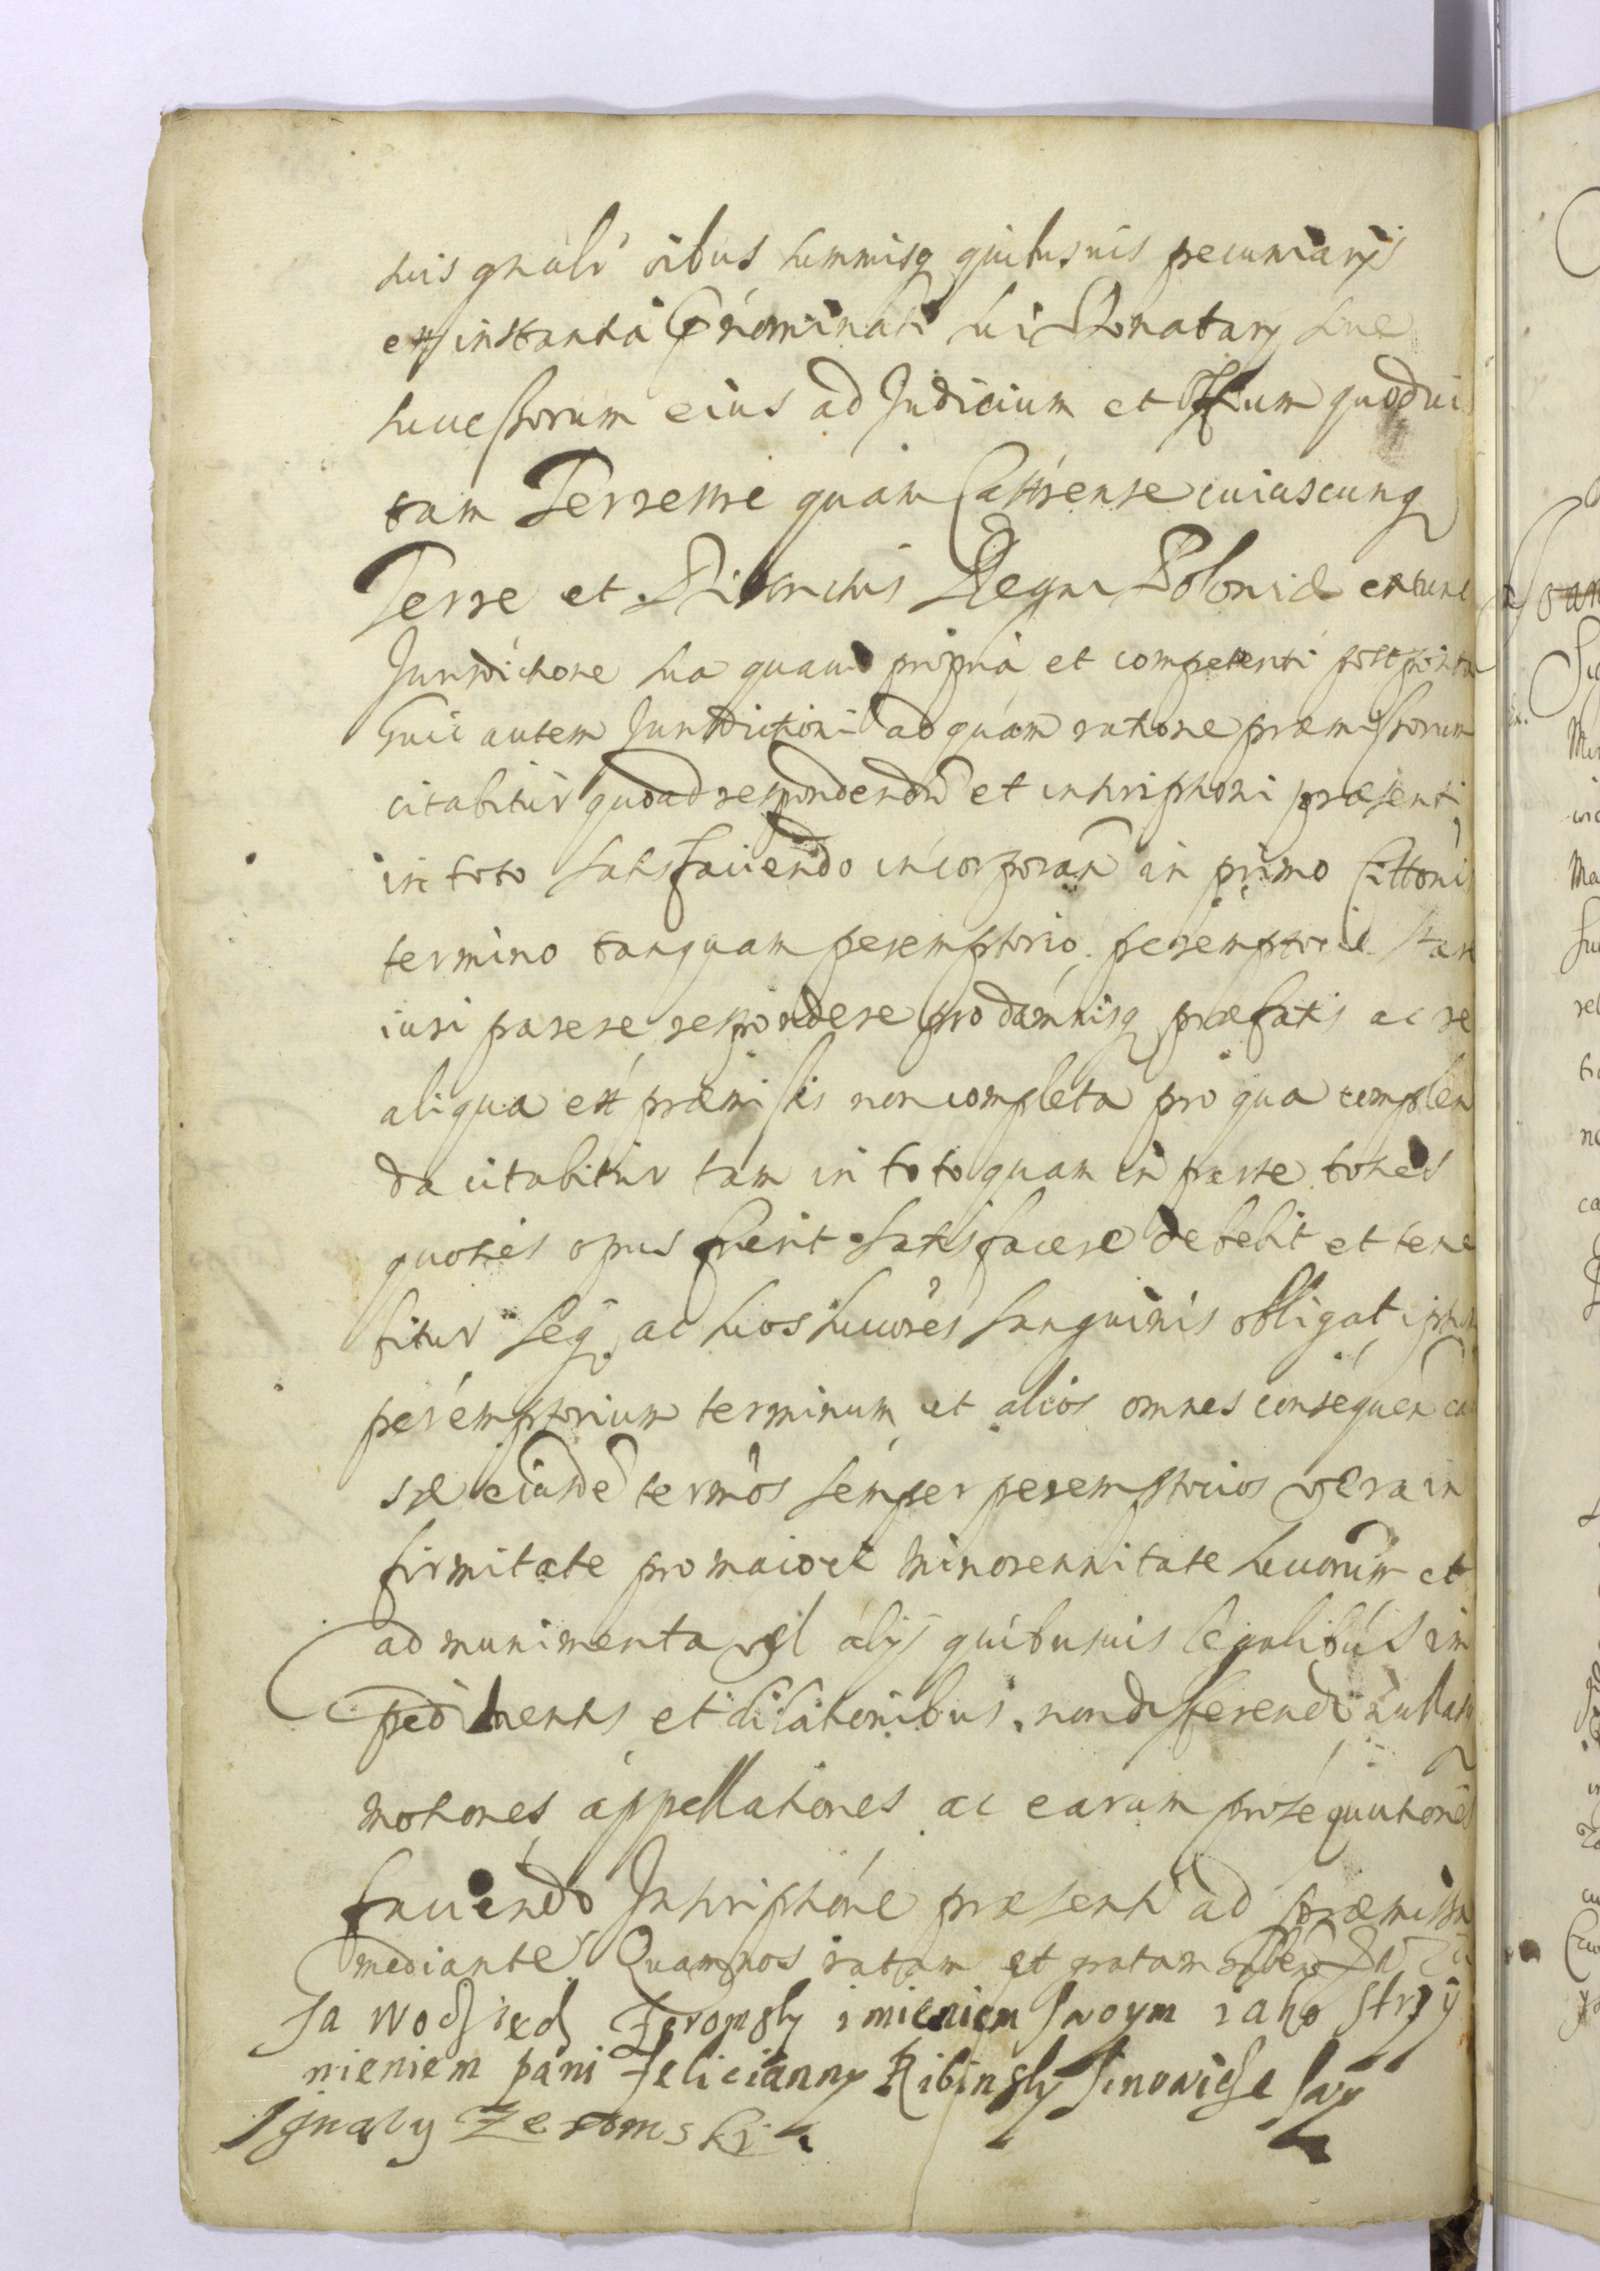 suis gnalibus summisq quibusuis pecuniarijs
et instantia prenominati sui Donatarij siue
successorum eius ad Judicium et Offium quoduis
tam Terrestre quam Castrense cuiuscunq
Terre et Districtus Regni Poloniæ extunc
Jurisdictione sua quauis propria et competenti postposita
Huic autem Jurisdictioni ad quam ratione præmissorum
citabitur quoad respondendū et inscriptioni præsenti
in toto satisfaciendo incorporan in primo Cittonis
termino tanquam peremptorio peremptorie stare
iuri parere respondere pro damnisq præfatis ac re
aliqua ex præmissis non completa pro qua complen
da citabitur tam in toto quam in parte toties
quoties opus fuerit satisfacere debebit et tene
bitur seq ac suos succores sanguinis obligat
peremptorium terminum et alios omnes consequen cau
sæ eiusdē termos semper peremptorios vera in
firmitate pro maiori minorennitate succorum et
ad munimenta vel alijs quibusuis legalibus im
pedimentis et dilationibus non differendi nullasq
motiones appellationes ac earum prosequutiones
faciendo Inscriptione præsenti ad præmissa
mediante Quam nos ratam et gratam
Ja Wodzieds Zeromsky imieniem swoym iako stryy
nieniem pani Felicianny Ribinsky sinowicze swy
Ignacy Zeromski